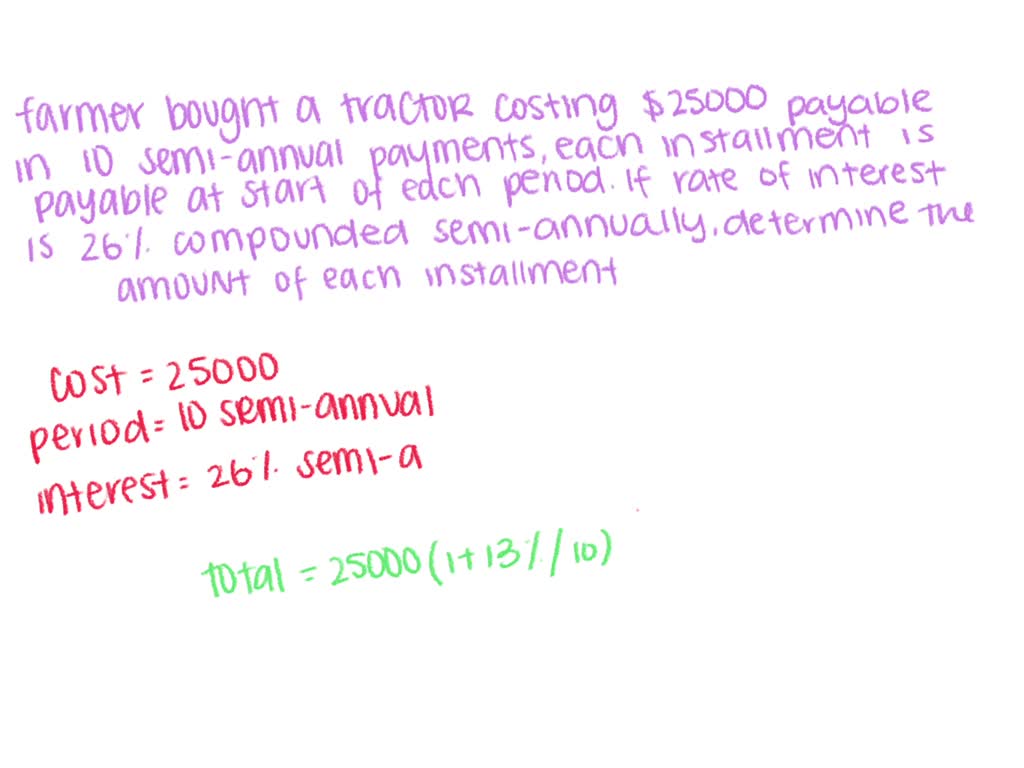 farmer bougnt a tractor costing $25000 payable
in 10 semi-annual payments, each installment is
payable at start of each period. If rate of interest
is 26% compounded semi-annually, determine the
amount of each installment
cost = 25000
period = 10 semi-annual
interest = 26% semi-a
total = 25000 (1+13%/10)